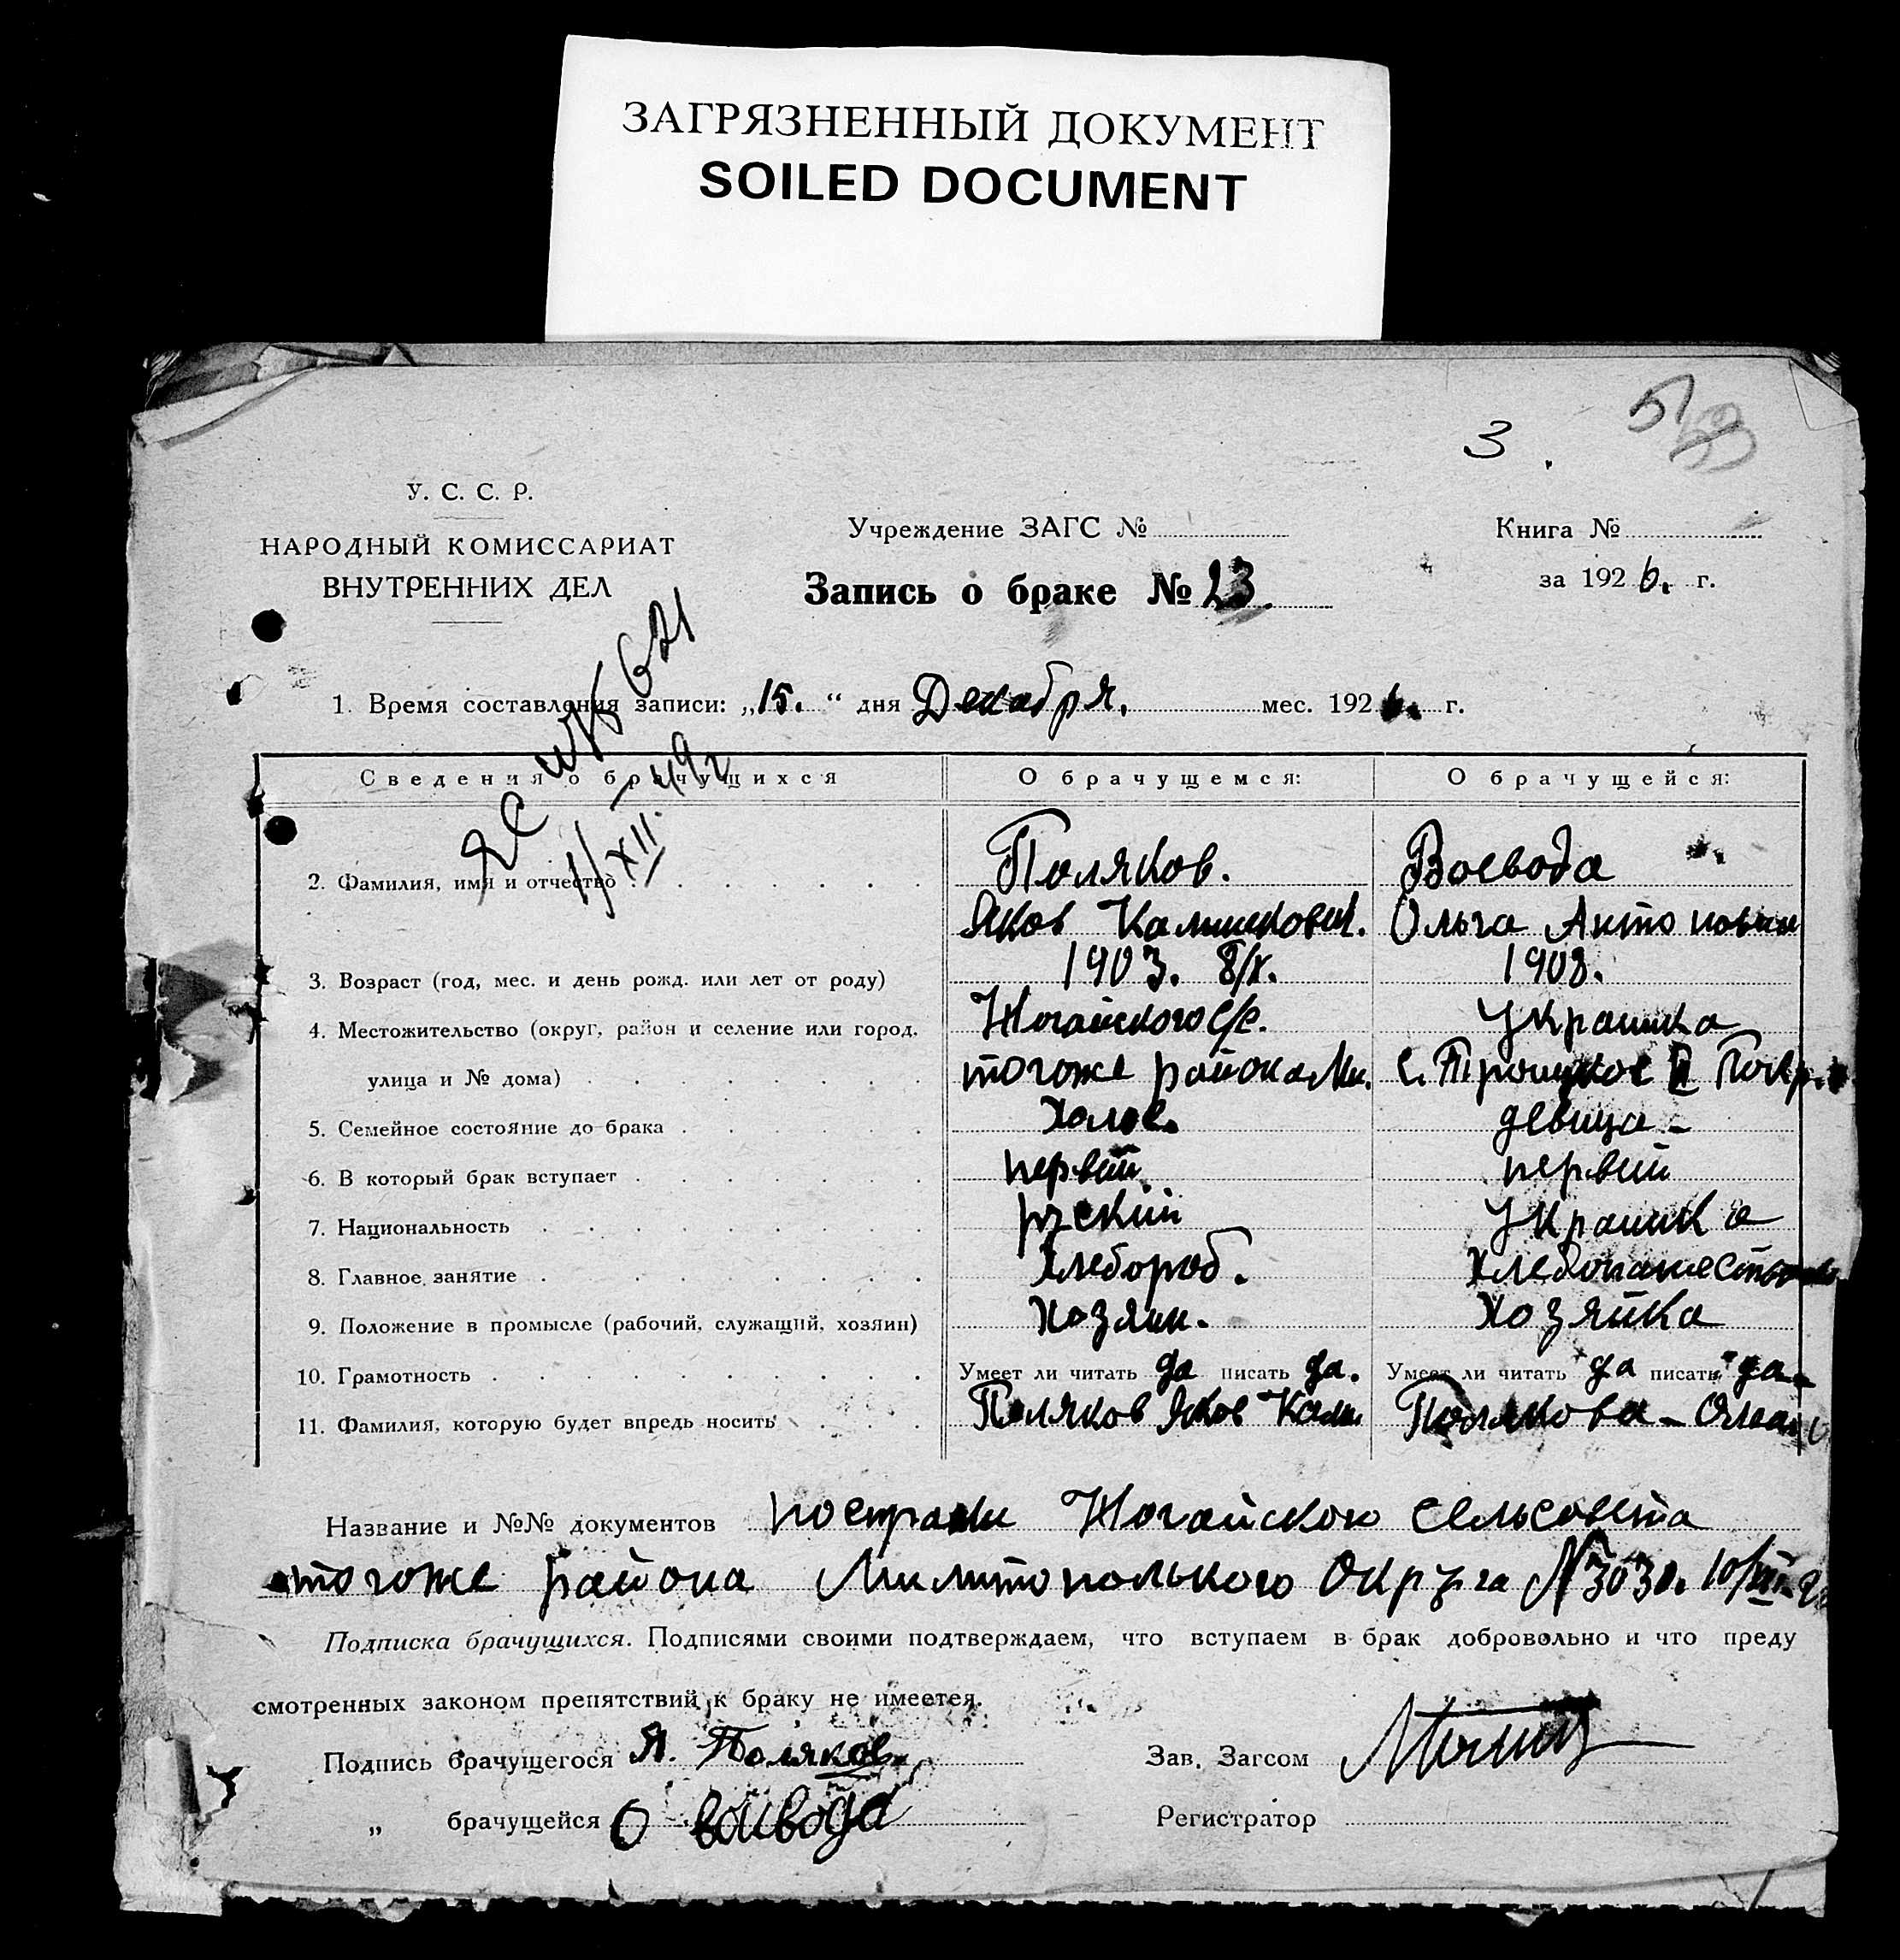 ЗАГРЯЗНЕННЫЙ ДОКУМЕНТ
SOILED DOCUMENT
3.
У. С. С. Р.
НАРОДНЫЙ КОМИССАРИАТ
ВНУТРЕННИХ ДЕЛ
Учреждение ЗАГС №
Запись о браке № 23.
Книга №
за 1926. г.
1. Время составления записи: „15.“ дня Декабря. мес. 1926. г.
Сведения о брачущихся О брачущемся: О брачущейся:
2. Фамилия, имя и отчество Поляков. Воевода
Яков Ольга
3. Возраст (год, мес. и день рожд. или лет от роду) 1903. 8/X. 1908.
4. Местожительство (округ, район и селение или город, Ногайского с/с. Украинка
улица и № дома) тогоже района Ми. с. Троицкое
5. Семейное состояние до брака Холос. девица -
6. В который брак вступает первый первый
7. Национальность руский Украинка
8. Главное занятие Хлебороб. Хлебопашество
9. Положение в промысле (рабочий, служащий, хозяин) Хозяин. Хозяйка
10. Грамотность Умеет ли читать да писать да. Умеет ли читать да писать да-
11. Фамилия, которую будет впредь носить Поляков Яков Полякова -
Название и №№ документов Ногайского сельсовета
тогоже района Округа №3030.
Подписка брачущихся. Подписями своими подтверждаем, что вступаем в брак добровольно и что преду
смотренных законом препятствий к браку не имеется.
Подпись брачущегося Я. Поляков. Зав. Загсом
„ брачущейся О воивода Регистратор